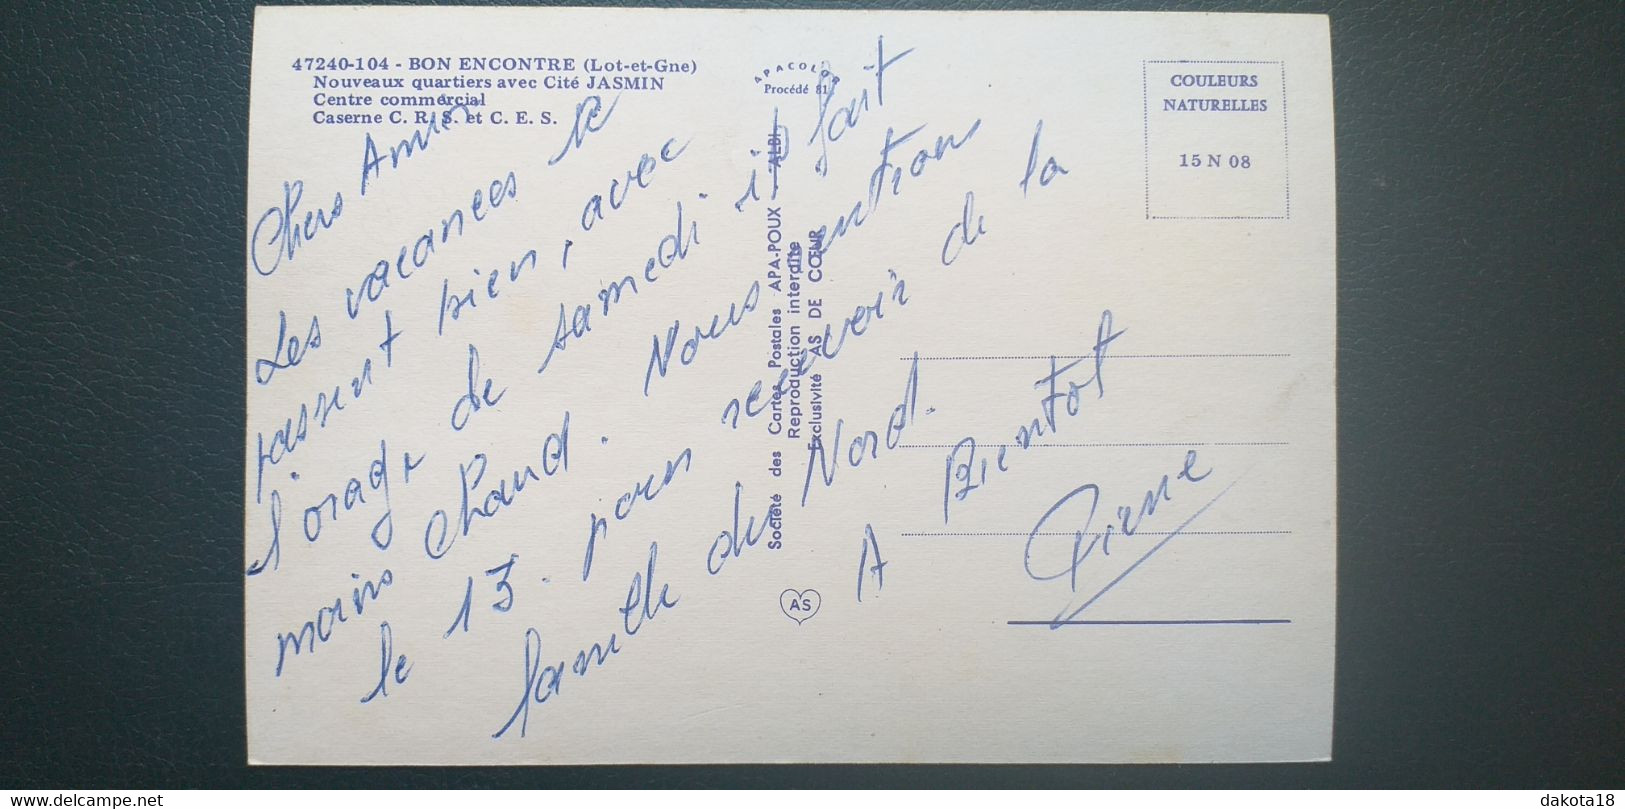 47240-104 - BON ENCONTRE (Lot-et-Gne)
Nouveaux quartiers avec Cité JASMIN
Centre commercial
Caserne C. R. S. et C. E. S.
APACOLOR
Procédé 81
COULEURS
NATURELLES
15 N 08
Société des Cartes Postales APA-POUX - ALBI
Reproduction interdite
Exclusivité AS DE CŒUR
AS
Chers Amis
Les vacances se
passent bien, avec
l'orage de samedi il fait
moins chaud. Nous rentrons
le 13. pour recevoir de la
famille du Nord.
A Bientot
Pierre
www.delcampe.net
dakota18